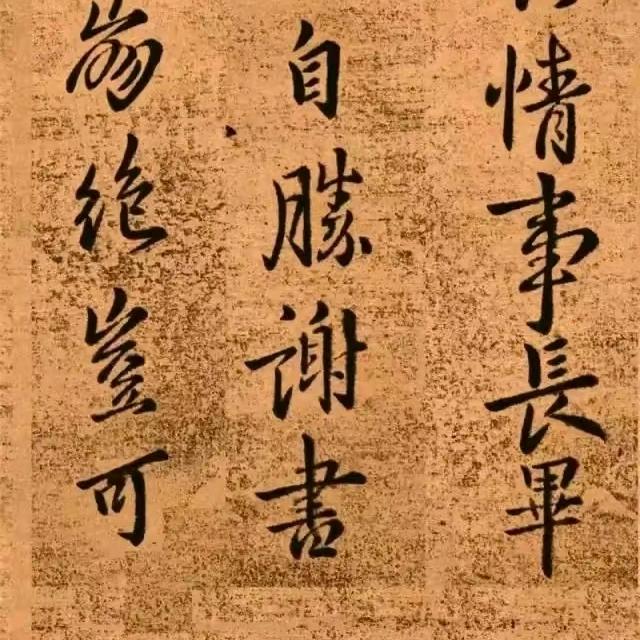 情事長畢
自勝謝書
崩絶豈可